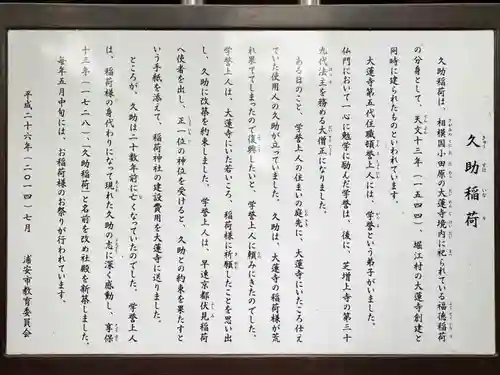 久助稲荷
きゅうすけいなり
久助稲荷は、相模国小田原の大蓮寺境内に祀られている福徳稲荷
の分身として、天文十三年（一五四四）、堀江村の大蓮寺創建と
同時に建られたものといわれています。
大蓮寺第五代住職頓誉上人には、学誉という弟子がいました。
仏門において一心に勉学に励んだ学誉は、後に、芝増上寺の第三十
九代法主を務める大僧正になりました。
ある日のこと、学誉上人の住まいの庭先に、大蓮寺にいたころ仕え
ていた使用人の久助が立っていました。久助は、大蓮寺の稲荷様が荒
れ果ててしまったので復興したいと、学誉上人に頼みにきたのでした。
学誉上人は、大蓮寺にいた若いころ、稲荷様に祈願したことを思い出
し、久助に改築を約束しました。学誉上人は、早速京都伏見稲荷
へ使者を出し、正一位の神位を受けると、久助との約束を果たすと
いう手紙を添えて、稲荷神社の建設費用を大蓮寺に送りました。
ところが、久助は二十数年前に亡くなっていたのでした。学誉上人
は、稲荷様の身代わりになって現れた久助の志に深く感動し、享保
十三年（一七二八）、「久助稲荷」と名前を改め社殿を新築しました。
毎年五月中旬には、お稲荷様のお祭りが行われています。
平成二十六年（二〇一四）七月　浦安市教育委員会